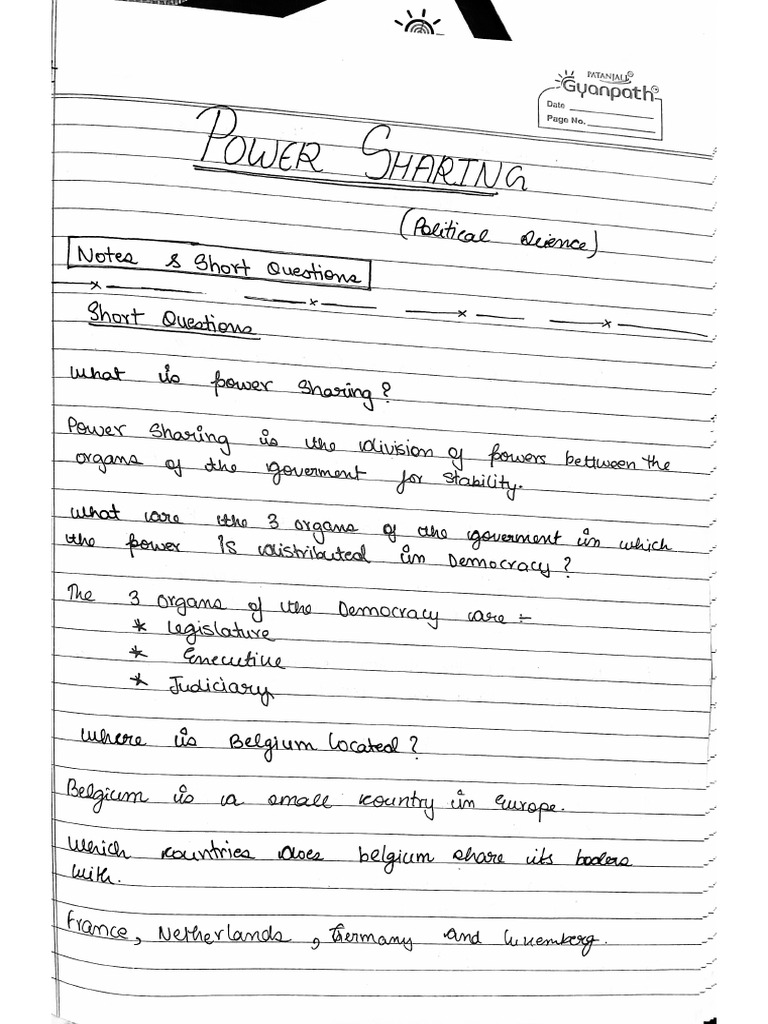 PATANJALI
Gyanpath
Date
Page No.
POWER SHARING
(Political Science)
Notes & Short Questions
Short Questions
What is power sharing?
Power Sharing is the division of powers bettween the
organs of the goverment for stability.
What are the 3 organs of the goverment in which
the power is distributed in Democracy?
The 3 organs of the Democracy are :-
* Legislature
* Executive
* Judiciary
Where is Belgium located?
Belgium is a small country in Europe.
Which countries does belgium share its boders
with.
France, Netherlands, Germany and Luxemberg.